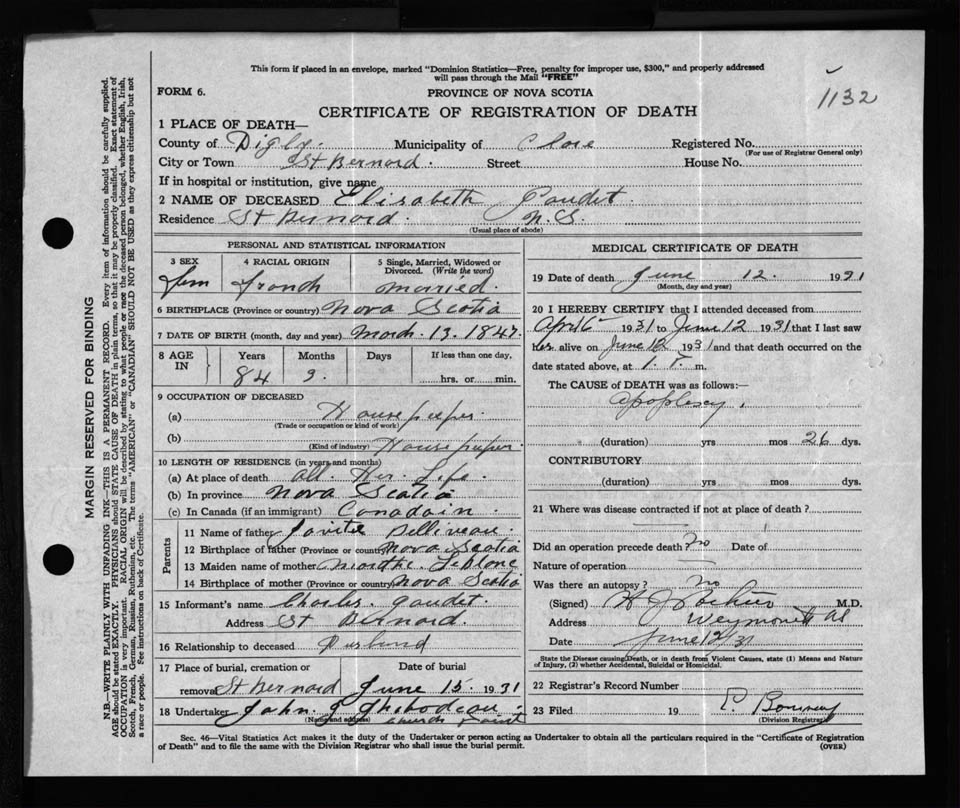 This form if placed in an envelope, marked "Dominion Statistics—Free, penalty for improper use, $300," and properly addressed
will pass through the Mail "FREE"
1132
FORM 6.
PROVINCE OF NOVA SCOTIA
CERTIFICATE OF REGISTRATION OF DEATH
1 PLACE OF DEATH—
County of Digby. Municipality of Clare Registered No.
(For use of Registrar General only)
City or Town St Bernard. Street House No.
If in hospital or institution, give name
2 NAME OF DECEASED Elisabeth Gaudet
Residence St Bernard. N.S.
(Usual place of abode)
PERSONAL AND STATISTICAL INFORMATION
3 SEX 4 RACIAL ORIGIN 5 Single, Married, Widowed or Divorced. (Write the word)
Fem French Married.
6 BIRTHPLACE (Province or country) Nova Scotia
7 DATE OF BIRTH (month, day and year) March. 13. 1847.
8 AGE IN Years Months Days If less than one day,
84 3. hrs. or min.
9 OCCUPATION OF DECEASED
(a) House keeper.
(Trade or occupation or kind of work)
(b) House keeper.
(Kind of industry)
10 LENGTH OF RESIDENCE (in years and months)
(a) At place of death all. Her. Life.
(b) In province Nova Scotia
(c) In Canada (if an immigrant) Canadain.
Parents
11 Name of father Belliveau.
12 Birthplace of father (Province or country) Nova Scotia
13 Maiden name of mother Marthe. Leblanc
14 Birthplace of mother (Province or country) Nova Scotia
15 Informant's name Charles. Gaudet.
Address St Bernard.
16 Relationship to deceased Husband
17 Place of burial, cremation or removal St Bernard Date of burial June 15. 1931
18 Undertaker John. J Thibodeau.
(Name and address) Church Point
MEDICAL CERTIFICATE OF DEATH
19 Date of death June 12. 1931
(Month, day and year)
20 I HEREBY CERTIFY that I attended deceased from
April 6 1931 to June 12 1931 that I last saw
her alive on June 12 1931 and that death occurred on the
date stated above, at 1. P. m.
The CAUSE of DEATH was as follows:—
Apoplexy.
(duration) yrs mos 26 dys.
CONTRIBUTORY
(duration) yrs mos dys.
21 Where was disease contracted if not at place of death?
Did an operation precede death? No Date of
Nature of operation
Was there an autopsy? No
(Signed) M.D.
Address Weymouth NS
Date June 12/31
State the Disease causing Death, or in death from Violent Causes, state (1) Means and Nature
of Injury, (2) whether Accidental, Suicidal or Homicidal.
22 Registrar's Record Number
23 Filed 19
(Division Registrar)
Sec. 46—Vital Statistics Act makes it the duty of the Undertaker or person acting as Undertaker to obtain all the particulars required in the "Certificate of Registration
of Death" and to file the same with the Division Registrar who shall issue the burial permit.
(OVER)
MARGIN RESERVED FOR BINDING
N.B.—WRITE PLAINLY WITH UNFADING INK—THIS IS A PERMANENT RECORD. Every item of information should be carefully supplied.
AGE should be stated EXACTLY. PHYSICIANS should STATE CAUSE OF DEATH in plain terms, so that it may be properly classified. Exact statement of
OCCUPATION is very important. RACIAL ORIGIN will be described by stating to what people or race the deceased person belonged, whether English, Irish,
Scotch, French, German, Russian, Ruthenian, etc. The terms "AMERICAN" or "CANADIAN" SHOULD NOT BE USED as they express citizenship but not
a race or people. See instructions on back of Certificate.